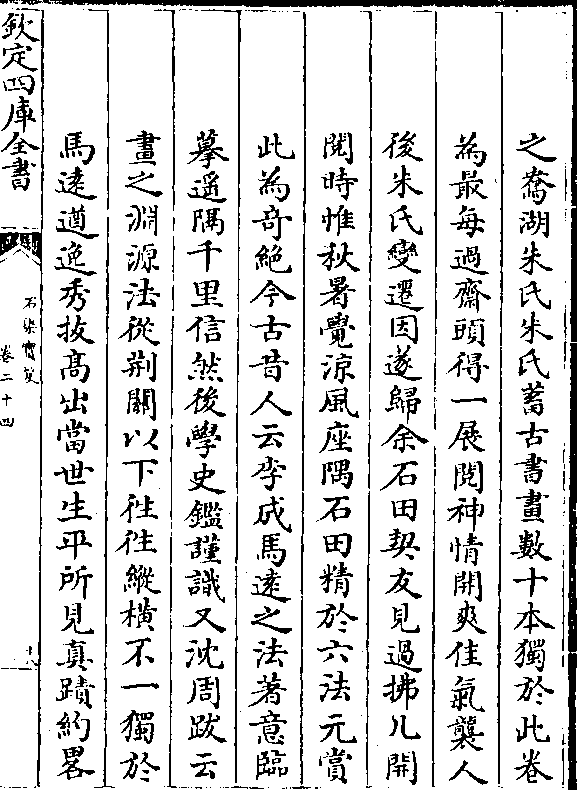 之鴦湖朱氏朱氏蓄古書畫數十本獨於此卷
為最每過齋頭得一展閱神情開爽佳氣襲人
後朱氏變遷因遂歸余石田契友見過拂几開
閱時惟秋暑覺涼風座隅石田精於六法元賞
此為奇絶今古昔人云李成馬逺之法著意臨
摹遥隔千里信然後學史鑑謹識又沈周跋云
畫之淵源法從荆關以下徃徃縱横不一獨於
馬逺遒逸秀拔髙出當世生平所見真蹟約畧
欽定四庫全書
石渠寶笈
卷二十四
十八